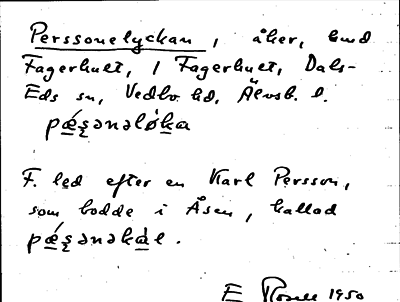 Perssonelyckan, åker, hmd
Fagerhult, 1 Fagerhult, Dals-
Eds sn, Vedbo hd, Älvsb. l.
pǽʂənəløka
F. led efter en Karl Persson,
som bodde i Åsen, kallad
pǽʂənəkàl.
E 1950